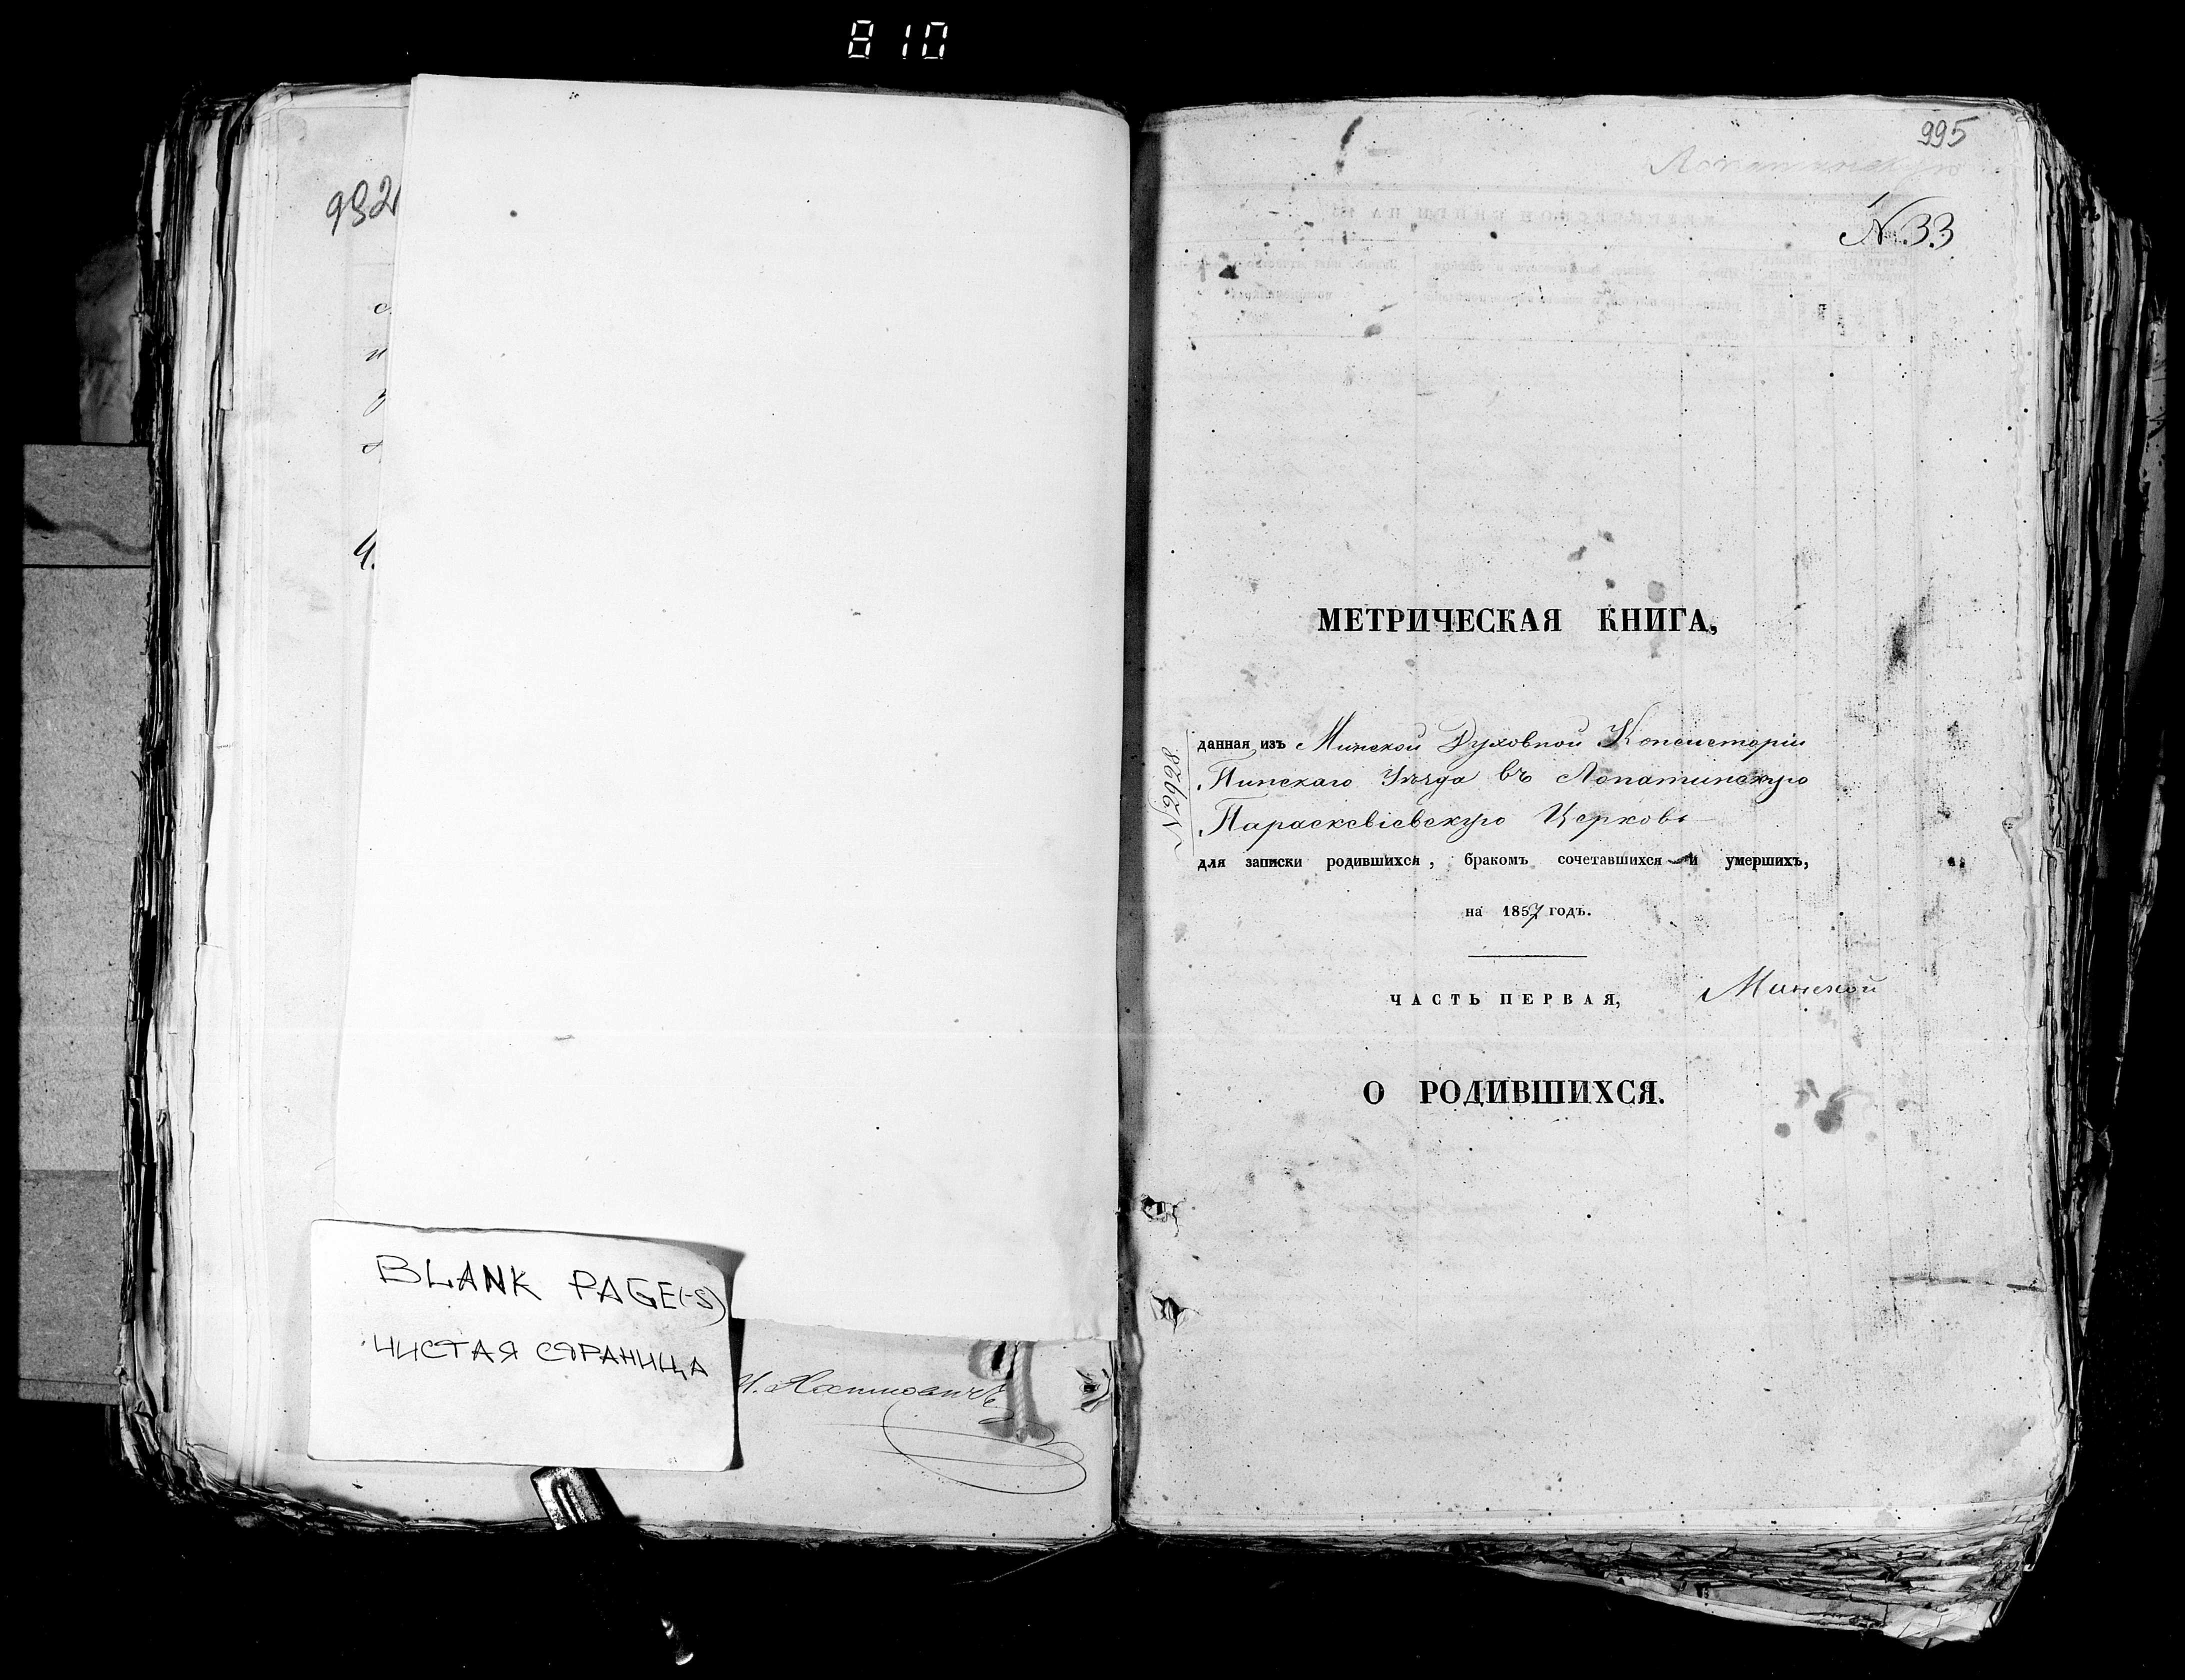 810
932
4.
BLANK PAGE(-S)
ЧИСТАЯ СТРАНИЦА
995
Лопатинскую
N.33
МЕТРИЧЕСКАЯ КНИГА,
данная изъ Минской Духовной Консисторіи
Пинскаго Уѣзда въ Лопатинскую
Параскевіевскую Церковь
N2928
для записки родившихся, бракомъ сочетавшихся и умершихъ,
на 1857 годъ.
ЧАСТЬ ПЕРВАЯ,
Минской
О РОДИВШИХСЯ.